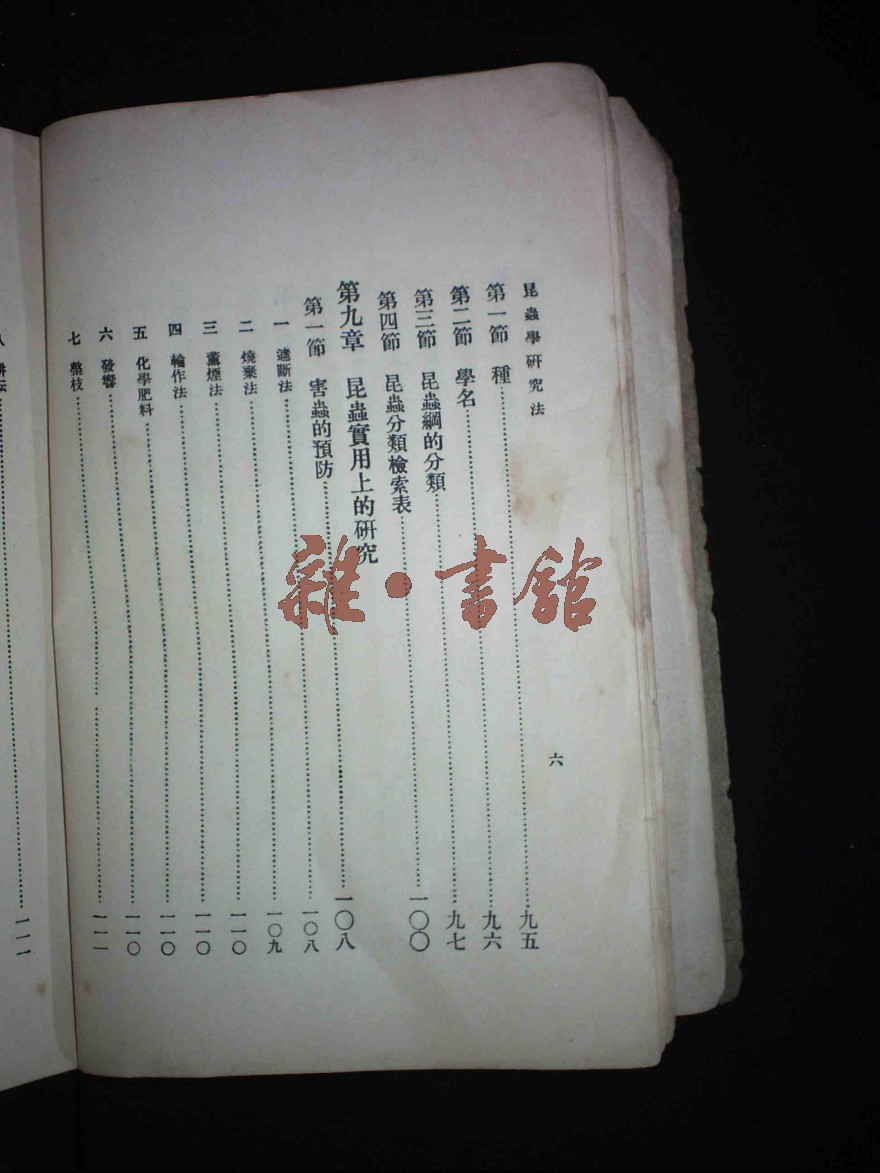 昆蟲學研究法
六
第一節 種……九五
第二節 學名……九六
第三節 昆蟲綱的分類……九七
第四節 昆蟲分類檢索表……一〇〇
第九章 昆蟲實用上的研究
第一節 害蟲的預防……一〇八
一 遮斷法……一〇八
二 燒棄法……一〇九
三 薰煙法……一一〇
四 輪作法……一一〇
五 化學肥料……一一〇
六 發響……一一〇
七 整枝……一一一
八 耕耘……一一一
雜·書館